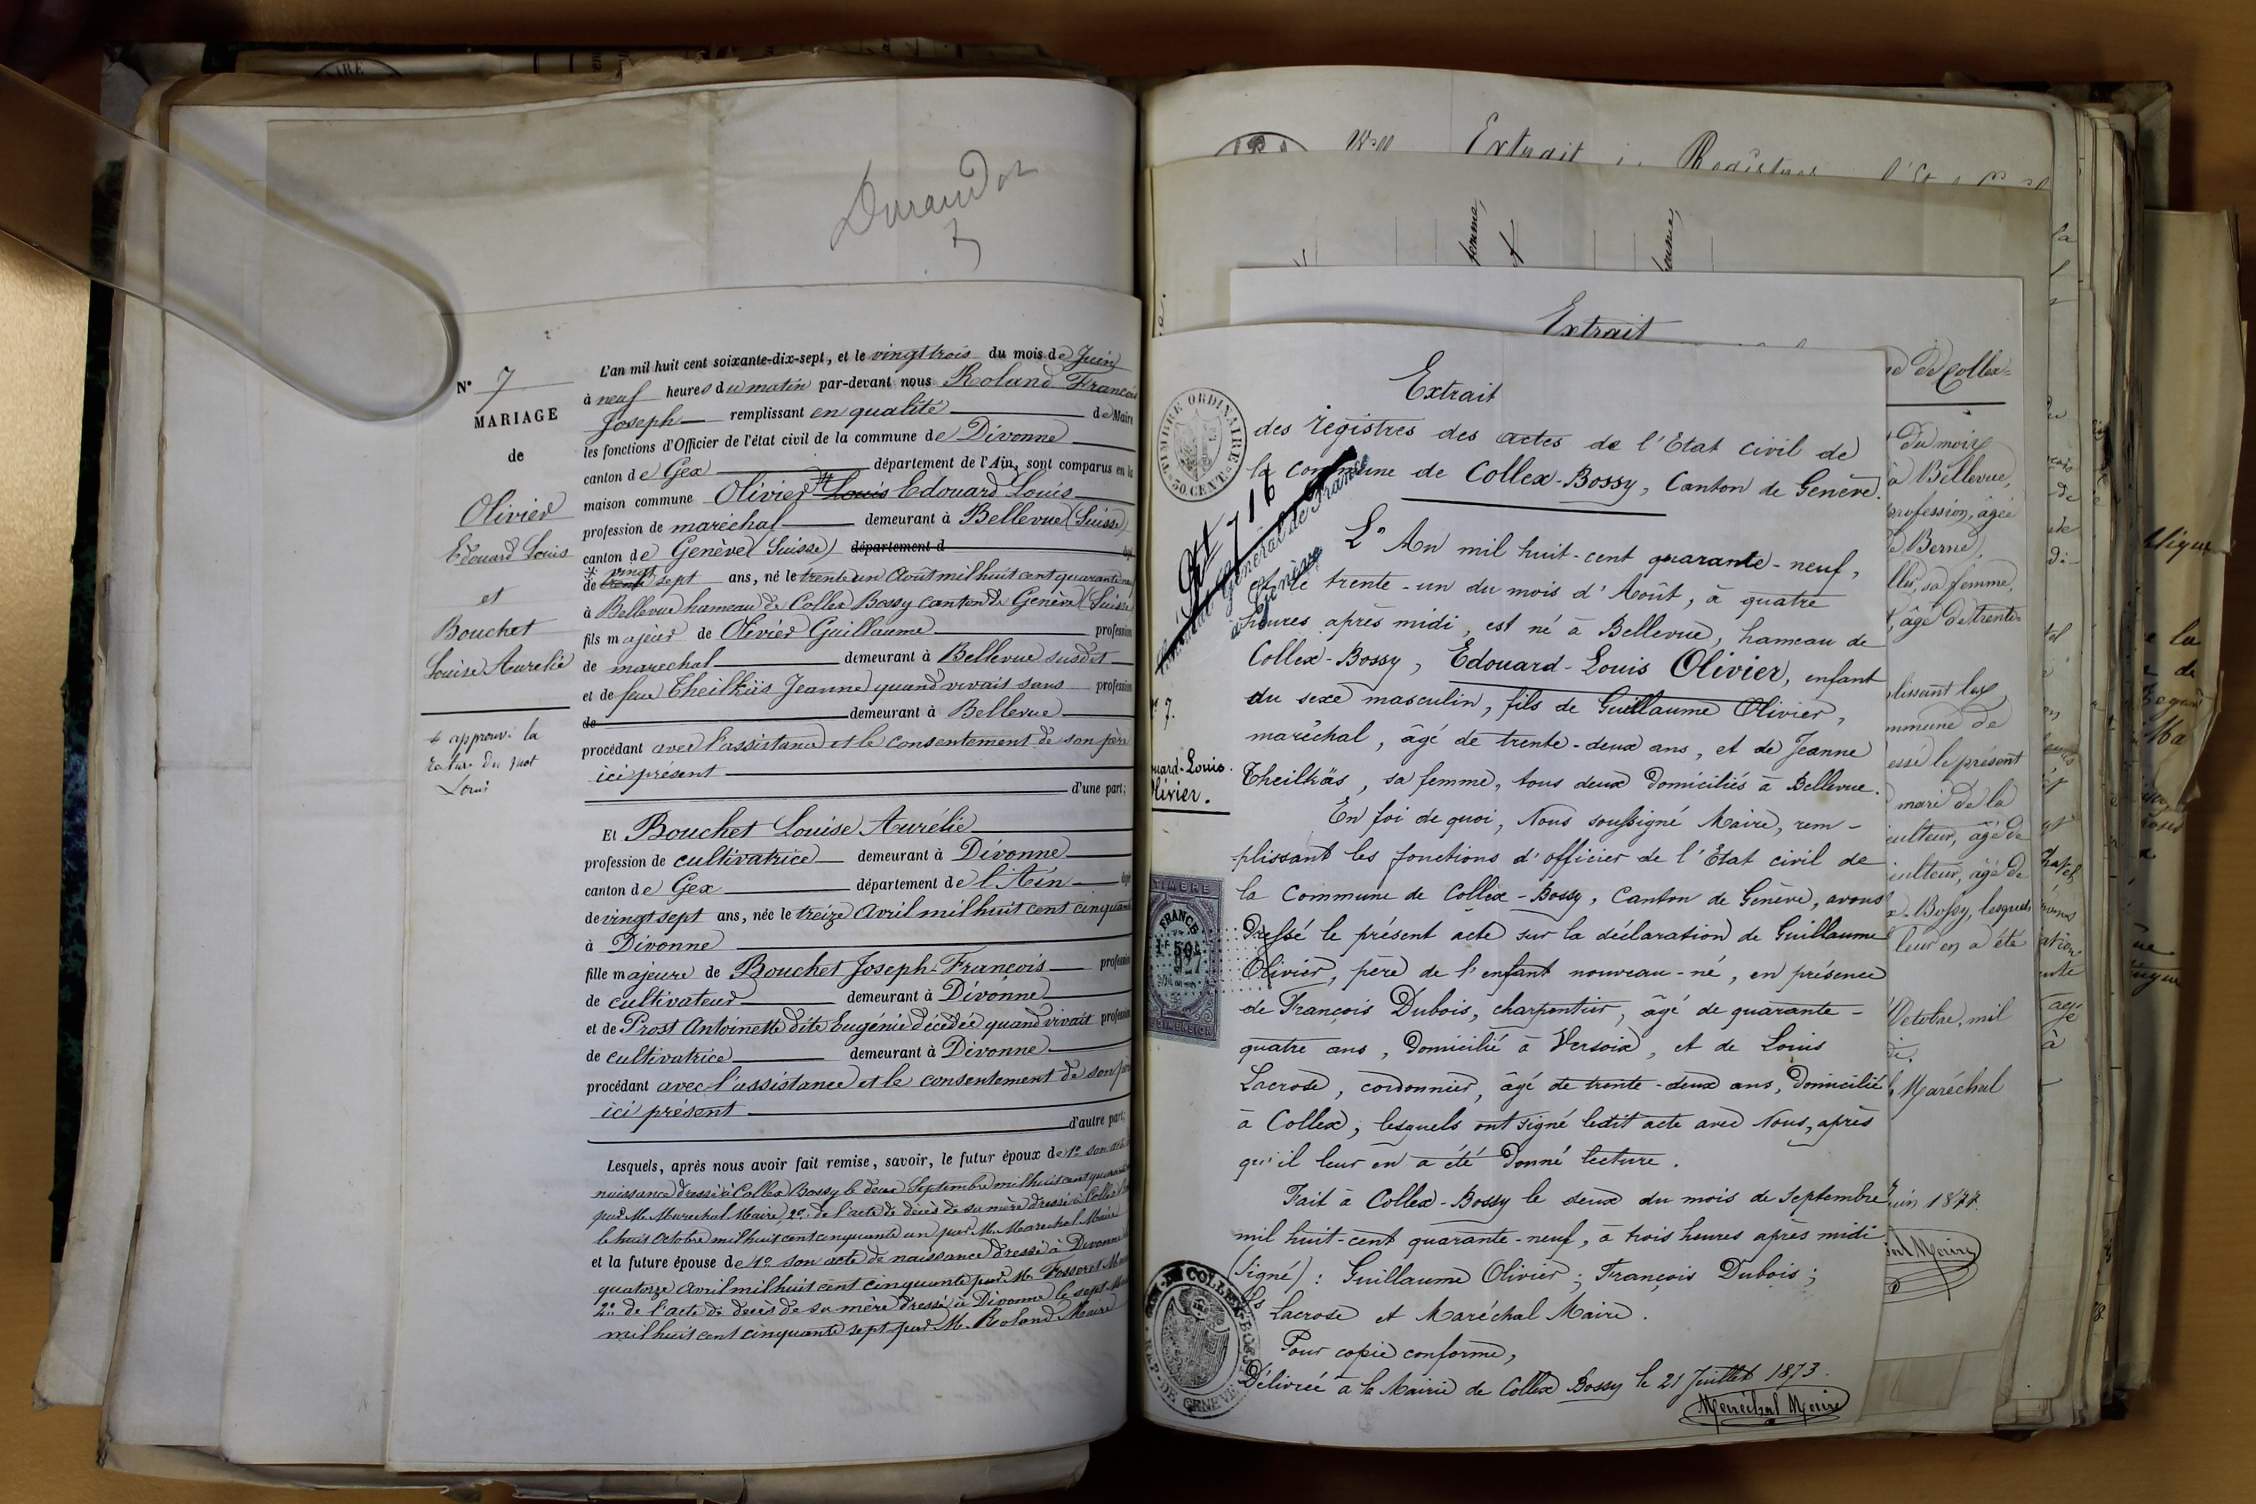 Durandot
N° 7
MARIAGE
de
Olivier
Edouard Louis
et
Bouchet
Louise Aurélie
* approuvé la
rature du mot
Louis
L'an mil huit cent soixante-dix-sept, et le vingt trois du mois de Juin
à neuf heures du matin par-devant nous Roland François
Joseph remplissant en qualité de Maire
les fonctions d'Officier de l'état civil de la commune de Divonne
canton de Gex département de l'Ain, sont comparus en la
maison commune Olivier Louis Edouard Louis
profession de maréchal demeurant à Bellevue (Suisse)
canton de Genève (Suisse) département d
de trente vingt sept ans, né le trente un Août mil huit cent quarante neuf
à Bellevue hameau de Collex Bossy canton de Genève (Suisse)
fils majeur de Olivier Guillaume profession
de marechal demeurant à Bellevue susdit
et de feue Theilkäs Jeanne quand vivait sans profession
de demeurant à Bellevue
procédant avec l'assistance et le consentement de son père
ici présent
d'une part;
Et Bouchet Louise Aurélie
profession de cultivatrice demeurant à Divonne
canton de Gex département de l'Ain
de vingt sept ans, née le treize Avril mil huit cent cinquante
à Divonne
fille majeure de Bouchet Joseph-François profession
de cultivateur demeurant à Divonne
et de Prost Antoinette dite Eugénie décédée quand vivait profession
de cultivatrice demeurant à Divonne
procédant avec l'assistance et le consentement de son père
ici présent
d'autre part;
Lesquels, après nous avoir fait remise, savoir, le futur époux de 1° son acte
naissance dressé à Collex Bossy le deux Septembre mil huit cent quarante
par M. Marechal Maire, 2° de l'acte de décès de sa mère dressé à Collex
le huit Octobre mil huit cent cinquante un par M. Marechal Maire
et la future épouse de 1° son acte de naissance dressé à Divonne
quatorze avril mil huit cent cinquante par M. Fosseret
2° de l'acte de décès de sa mère dressé à Divonne le sept
mil huit cent cinquante sept par M. Roland Maire
Extrait
Extrait
des registres des actes de l'Etat civil de
la commune de Collex-Bossy, Canton de Genève.
TIMBRE ORDINAIRE
50. CENT.
716
Consulat Général de France
à Genève
L'An mil huit-cent quarante-neuf,
et le trente-un du mois d'Août, à quatre
heures après midi, est né à Bellevue, hameau de
Collex-Bossy, Edouard-Louis Olivier, enfant
du sexe masculin, fils de Guillaume Olivier,
maréchal, âgé de trente-deux ans, et de Jeanne
Theilkäs, sa femme, tous deux domiciliés à Bellevue.
7.
ouard-Louis
livier.
En foi de quoi, Nous soussigné Maire, rem-
plissant les fonctions d'officier de l'Etat civil de
la Commune de Collex-Bossy, Canton de Genève, avons
dressé le présent acte sur la déclaration de Guillaume
Olivier, père de l'enfant nouveau-né, en présence
de François Dubois, charpentier, âgé de quarante-
quatre ans, domicilié à Versoix, et de Louis
Lacrose, cordonnier, âgé de trente-deux ans, domicilié
à Collex, lesquels ont signé ledit acte avec Nous, après
qu'il leur en a été donné lecture.
TIMBRE
FRANCE
50c
DIMENSION
Fait à Collex-Bossy le deux du mois de Septembre
mil huit-cent quarante-neuf, à trois heures après midi
(Signé): Guillaume Olivier; François Dubois;
Ls Lacrose et Maréchal Maire.
Pour copie conforme,
Délivrée à la Mairie de Collex Bossy le 21 Juillet 1873.
Maréchal Maire
COLLEX-BOSSY
GENEVE
de Collex-
du moire
à Bellevue,
profession, âgée
de Berne,
sa femme,
âgé de trente-
plissant les
mmune de
essé le présent
mari de la
culteur, âgé de
culteur, âgé de
Bossy, lesquels
leur en a été
Octobre, mil
Maréchal
Juin 1877.
Maire